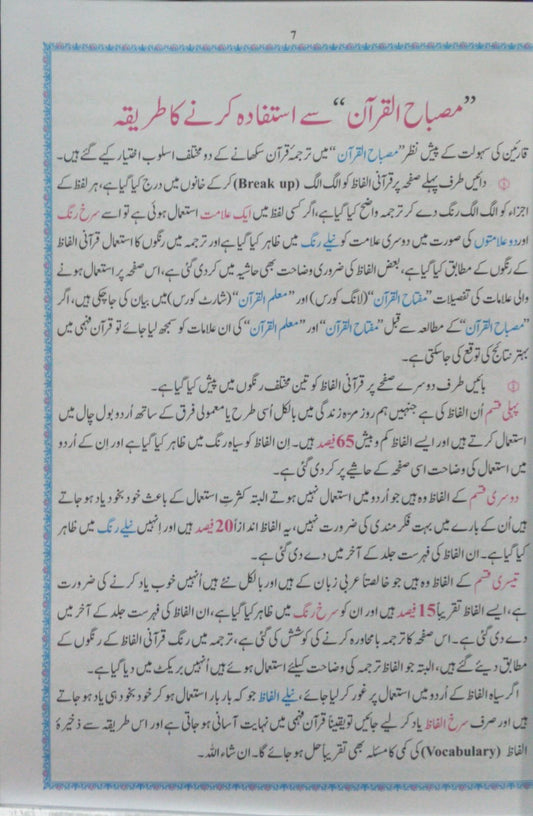 7
”مصباح القرآن“ سے استفادہ کرنے کا طریقہ
قارئین کی سہولت کے پیش نظر ”مصباح القرآن“ میں ترجمہ قرآن سکھانے کے دو مختلف اسلوب اختیار کیے گئے ہیں۔
دائیں طرف پہلے صفحہ پر قرآنی الفاظ کو الگ الگ (Break up) کر کے خانوں میں درج کیا گیا ہے، ہر لفظ کے
اجزاء کو الگ الگ رنگ دے کر ترجمہ واضح کیا گیا ہے، اگر کسی لفظ میں ایک علامت استعمال ہوئی ہے تو اسے سرخ رنگ
اور دو علامتوں کی صورت میں دوسری علامت کو نیلے رنگ میں ظاہر کیا گیا ہے اور ترجمہ میں رنگوں کا استعمال قرآنی الفاظ
کے رنگوں کے مطابق کیا گیا ہے، بعض الفاظ کی ضروری وضاحت بھی حاشیہ میں کر دی گئی ہے، اس صفحہ پر استعمال ہونے
والی علامات کی تفصیلات ”مفتاح القرآن“ (لانگ کورس) اور ”معلم القرآن“ (شارٹ کورس) میں بیان کی جا چکی ہیں، اگر
”مصباح القرآن“ کے مطالعہ سے قبل ”مفتاح القرآن“ اور ”معلم القرآن“ کی ان علامات کو سمجھ لیا جائے تو قرآن فہمی میں
بہتر نتائج کی توقع کی جاسکتی ہے۔
بائیں طرف دوسرے صفحے پر قرآنی الفاظ کو تین مختلف رنگوں میں پیش کیا گیا ہے۔
پہلی قسم اُن الفاظ کی ہے جنہیں ہم روز مرہ زندگی میں بالکل اُسی طرح یا معمولی فرق کے ساتھ اُردو بول چال میں
استعمال کرتے ہیں اور ایسے الفاظ کم و بیش 65 فیصد ہیں۔ اِن الفاظ کو سیاہ رنگ میں ظاہر کیا گیا ہے اور اِن کے اُردو
میں استعمال کی وضاحت اسی صفحہ کے حاشیے پر کر دی گئی ہے۔
دوسری قسم کے الفاظ وہ ہیں جو اُردو میں استعمال نہیں ہوتے البتہ کثرتِ استعمال کے باعث خود بخود یاد ہو جاتے
ہیں اُن کے بارے میں بہت فکر مندی کی ضرورت نہیں، یہ الفاظ اندازاً 20 فیصد ہیں اور اِنہیں نیلے رنگ میں ظاہر
کیا گیا ہے۔ ان الفاظ کی فہرست جلد کے آخر میں دے دی گئی ہے۔
تیسری قسم کے الفاظ وہ ہیں جو خالصتاً عربی زبان کے ہیں اور بالکل نئے ہیں اُنہیں خوب یاد کرنے کی ضرورت
ہے، ایسے الفاظ تقریباً 15 فیصد ہیں اور ان کو سرخ رنگ میں ظاہر کیا گیا ہے، ان الفاظ کی فہرست جلد کے آخر میں
دے دی گئی ہے۔ اس صفحہ کا ترجمہ بامحاورہ کرنے کی کوشش کی گئی ہے، ترجمہ میں رنگ قرآنی الفاظ کے رنگوں کے
مطابق دیئے گئے ہیں، البتہ جو الفاظ ترجمہ کی وضاحت کیلئے استعمال ہوئے ہیں اُنہیں بریکٹ میں دیا گیا ہے۔
اگر سیاہ الفاظ کے اُردو میں استعمال پر غور کر لیا جائے، نیلے الفاظ جو کہ بار بار استعمال ہو کر خود بخود ہی یاد ہو جاتے
ہیں اور صرف سرخ الفاظ یاد کر لیے جائیں تو یقیناً قرآن فہمی میں نہایت آسانی ہو جاتی ہے اور اس طریقہ سے ذخیرۂ
الفاظ (Vocabulary) کی کمی کا مسئلہ بھی تقریباً حل ہو جائے گا۔ ان شاء اللہ۔